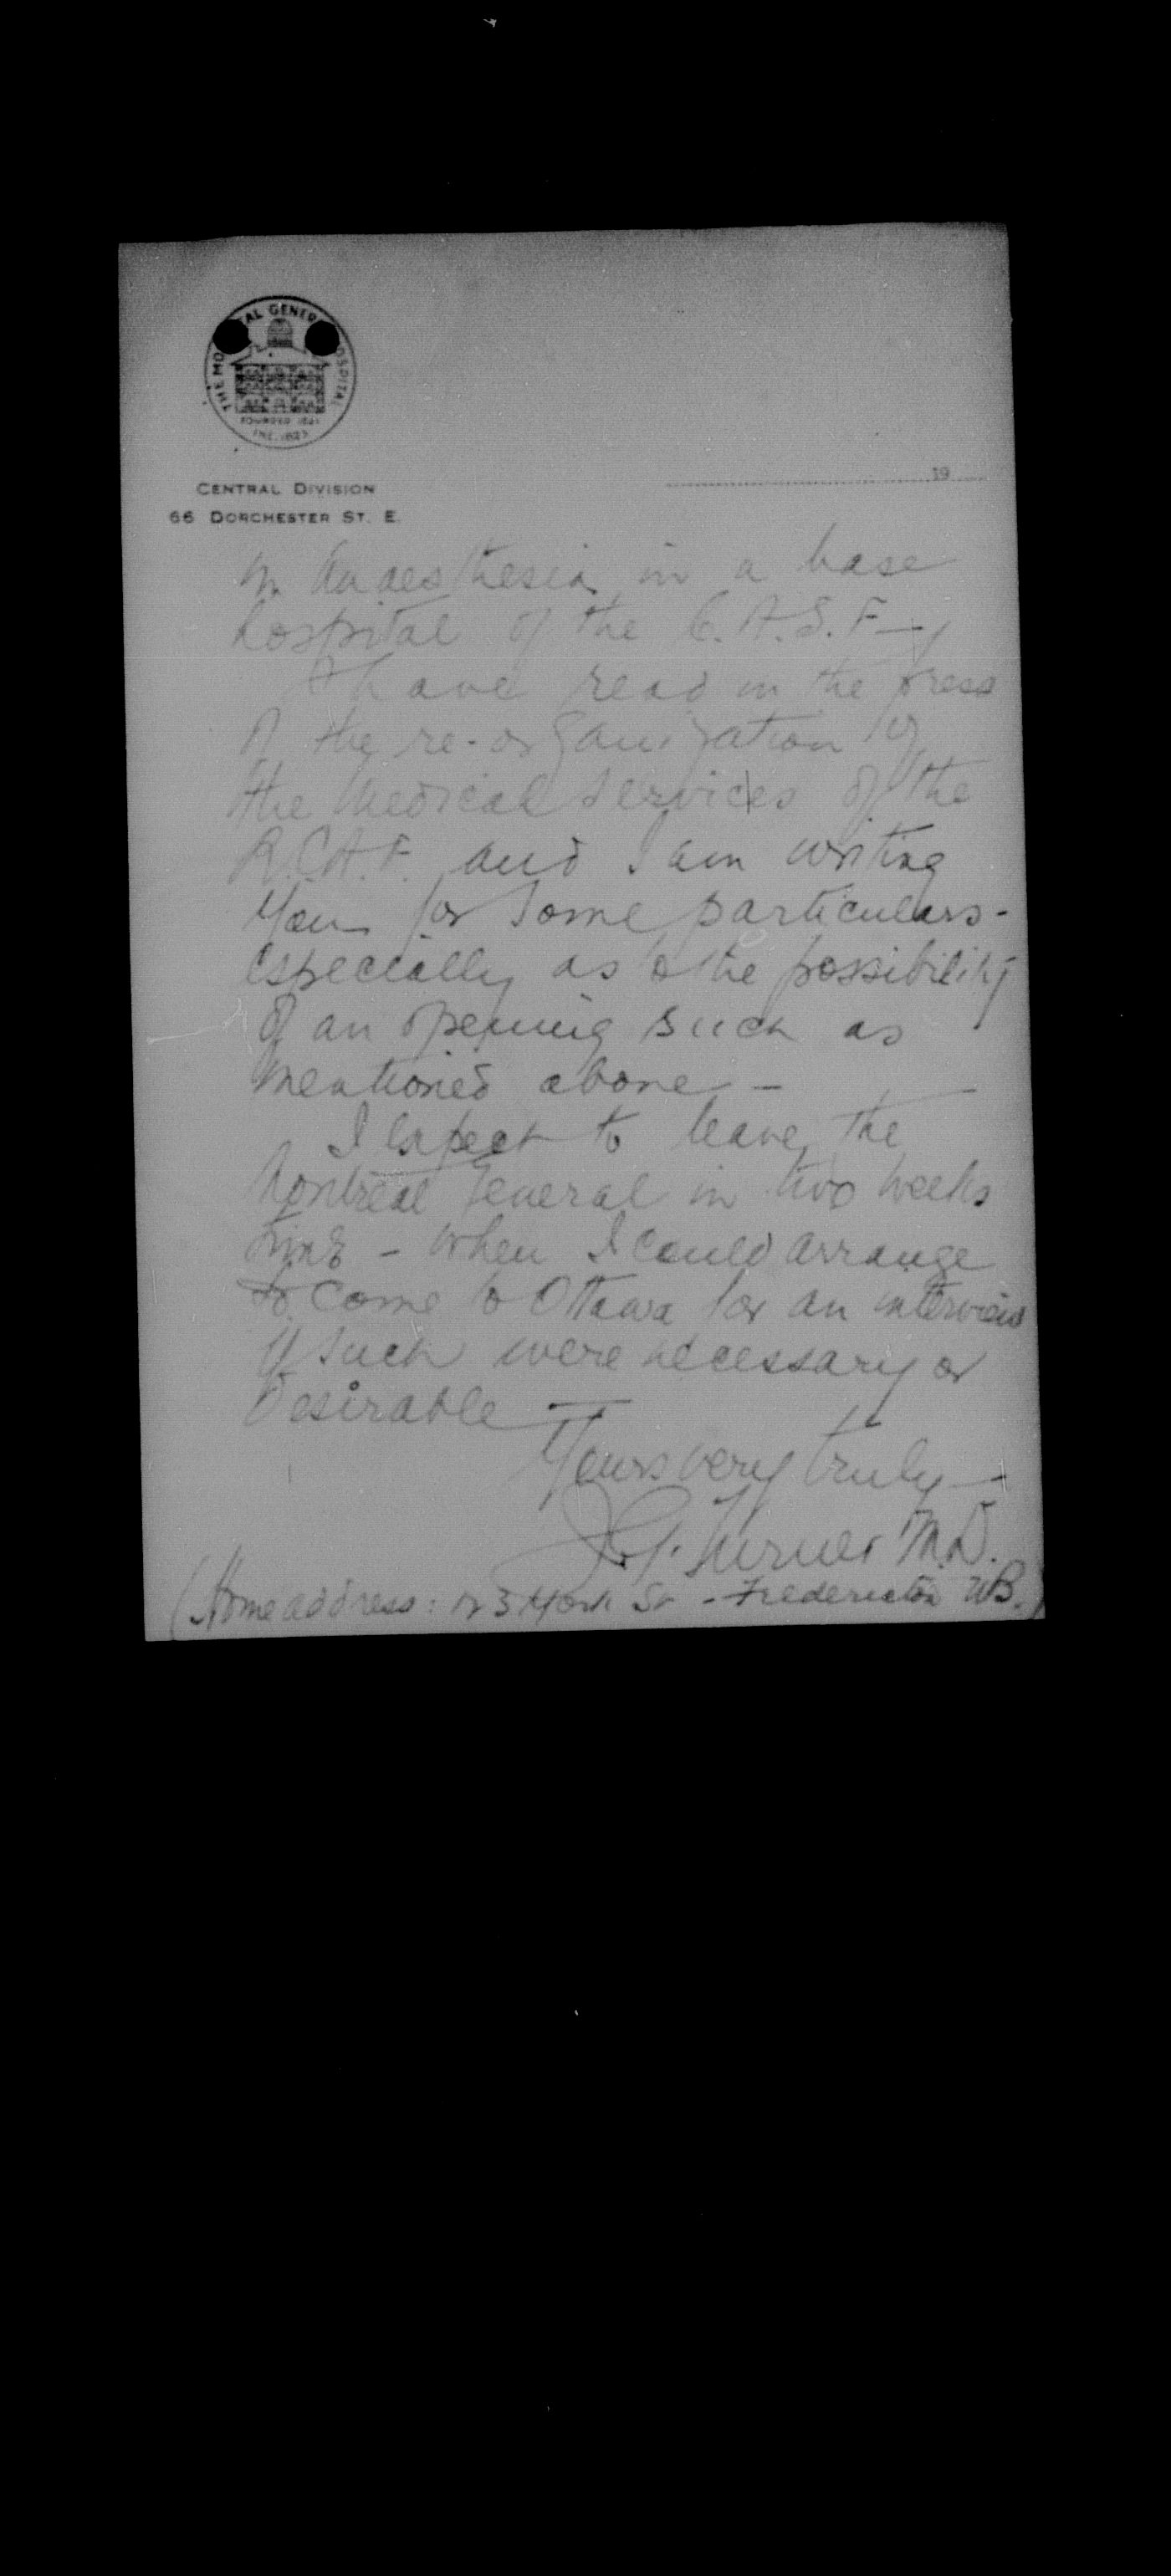 THE MONTREAL GENERAL HOSPITAL
FOUNDED 1821
INC. 1823
CENTRAL DIVISION
66 DORCHESTER ST. E.
19
in Anaesthesia in a base
hospital of the C.A.S.F. -
I have read in the press
of the re-organization of
the Medical Services of the
R.C.A.F. and I am writing
you for some particulars -
especially as to the possibility
of an opening such as
mentioned above -
I expect to leave the
Montreal General in two weeks
time - when I could arrange
to come to Ottawa for an interview
if such were necessary or
desirable -
Yours very truly -
J.G. Turner M.D.
(Home address: York St - Fredericton N.B.)